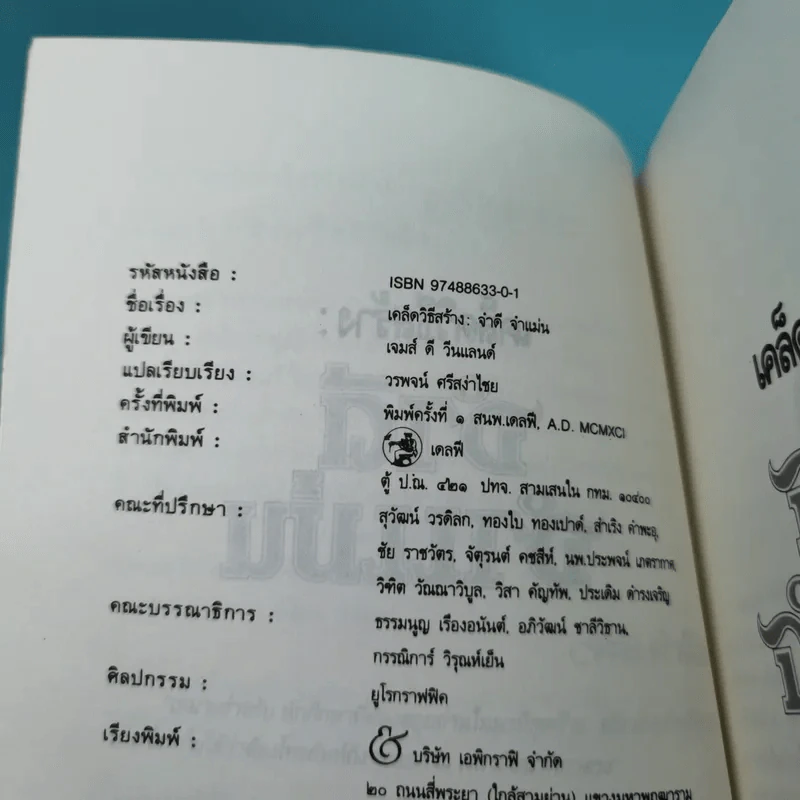 รหัสหนังสือ : ISBN 97488633-0-1
ชื่อเรื่อง : เคล็ดวิธีสร้าง: จำดี จำแม่น
ผู้เขียน : เจมส์ ดี วีนแลนด์
แปลเรียบเรียง : วรพจน์ ศรีสง่าไชย
ครั้งที่พิมพ์ : พิมพ์ครั้งที่ ๑ สนพ.เดลฟี, A.D. MCMXCI
สำนักพิมพ์ : เดลฟี
ตู้ ป.ณ. ๔๒๑ ปทจ. สามเสนใน กทม. ๑๐๔๐๐
คณะที่ปรึกษา : สุวัฒน์ วรดิลก, ทองใบ ทองเปาด์, สำเริง คำพะอุ,
ชัย ราชวัตร, จัตุรนต์ คชสีห์, นพ.ประพจน์ เภตรากาศ,
วิฑิต วัณณาวิบูล, วิสา คัญทัพ, ประเดิม ดำรงเจริญ
คณะบรรณาธิการ : ธรรมนูญ เรืองอนันต์, อภิวัฒน์ ชาลีวิธาน,
กรรณิการ์ วิรุณห์เย็น
ศิลปกรรม : ยูโรกราฟฟิค
เรียงพิมพ์ : บริษัท เอพิกราฟิ จำกัด
๒๐ ถนนสี่พระยา (ใกล้สามย่าน) แขวงมหาพฤฒาราม